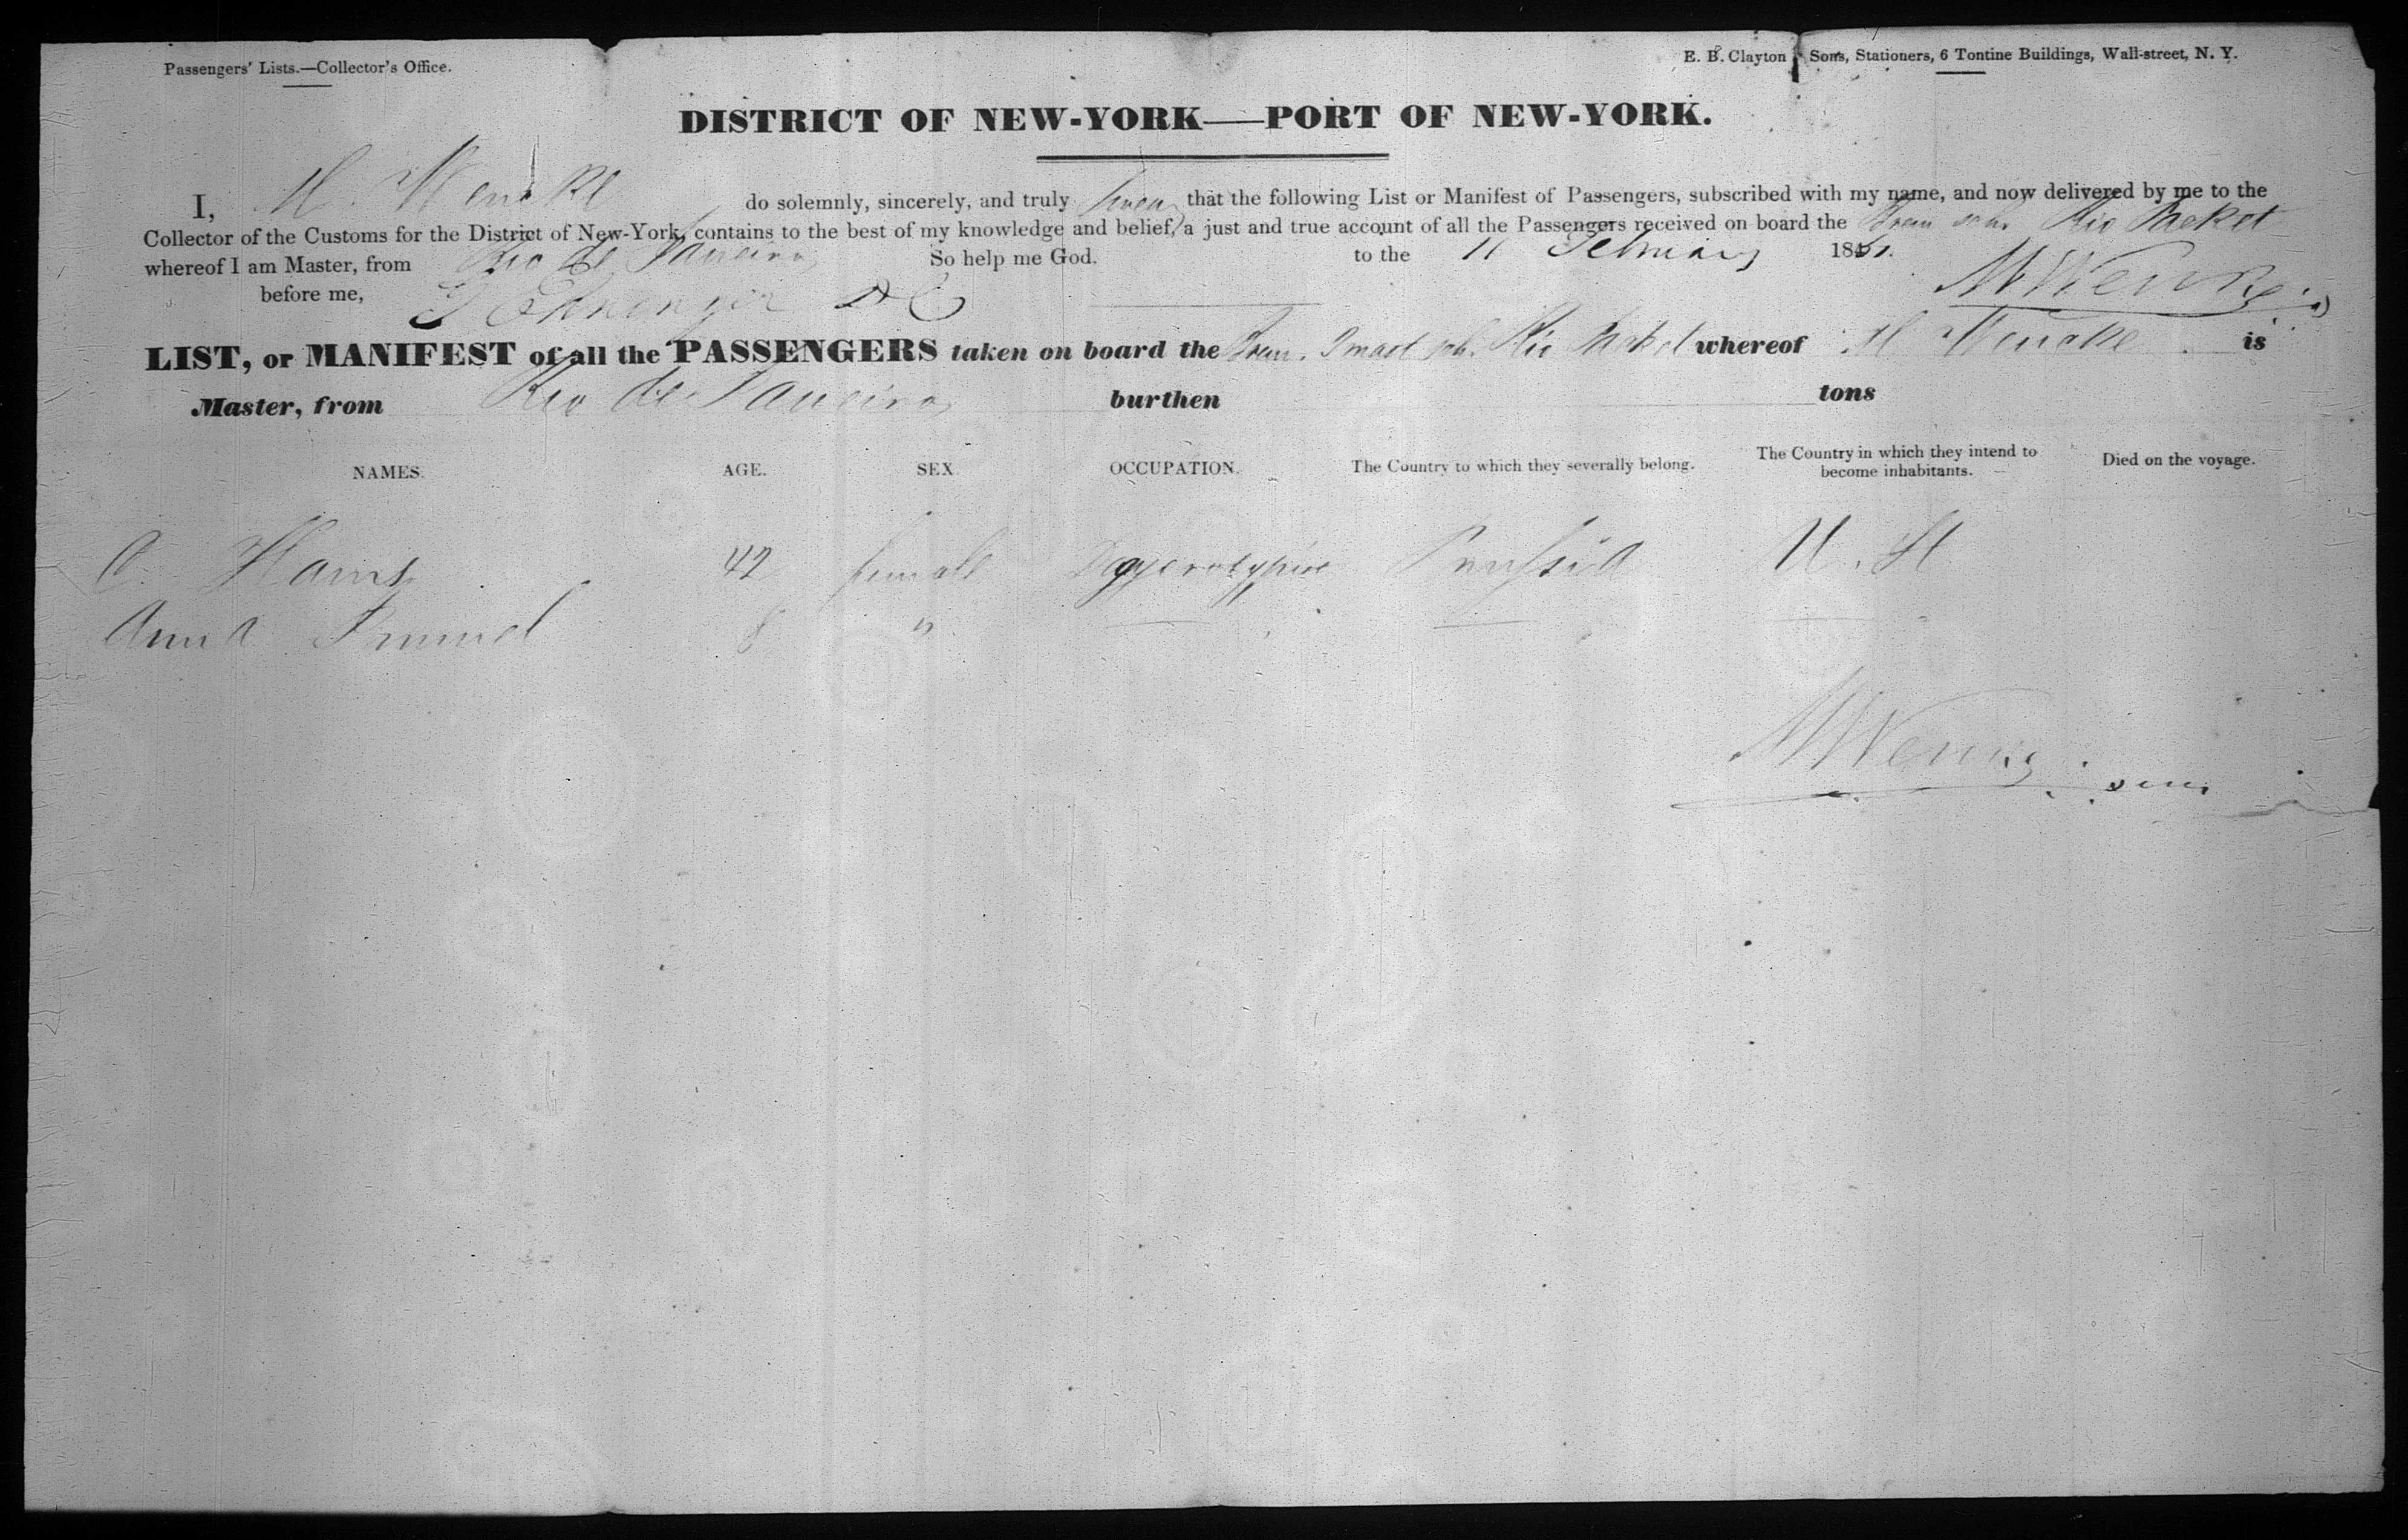 Passengers' Lists.—Collector's Office.
E. B. Clayton & Sons, Stationers, 6 Tontine Buildings, Wall-street, N. Y.
DISTRICT OF NEW-YORK—PORT OF NEW-YORK.
I, M. Wencke do solemnly, sincerely, and truly swear that the following List or Manifest of Passengers, subscribed with my name, and now delivered by me to the
Collector of the Customs for the District of New-York, contains to the best of my knowledge and belief, a just and true account of all the Passengers received on board the Brem schr Rio Packet
whereof I am Master, from Rio de Janeiro So help me God. to the 11 February 1851.
before me, M Wencke
LIST, or MANIFEST of all the PASSENGERS taken on board the Brem. 3 mast sch. Rio Packet whereof M Wencke is
Master, from Rio de Janeiro burthen tons
NAMES. AGE. SEX. OCCUPATION. The Country to which they severally belong. The Country in which they intend to become inhabitants. Died on the voyage.
C. 42 female Prussia U. St
Anna 8 "
M Wencke